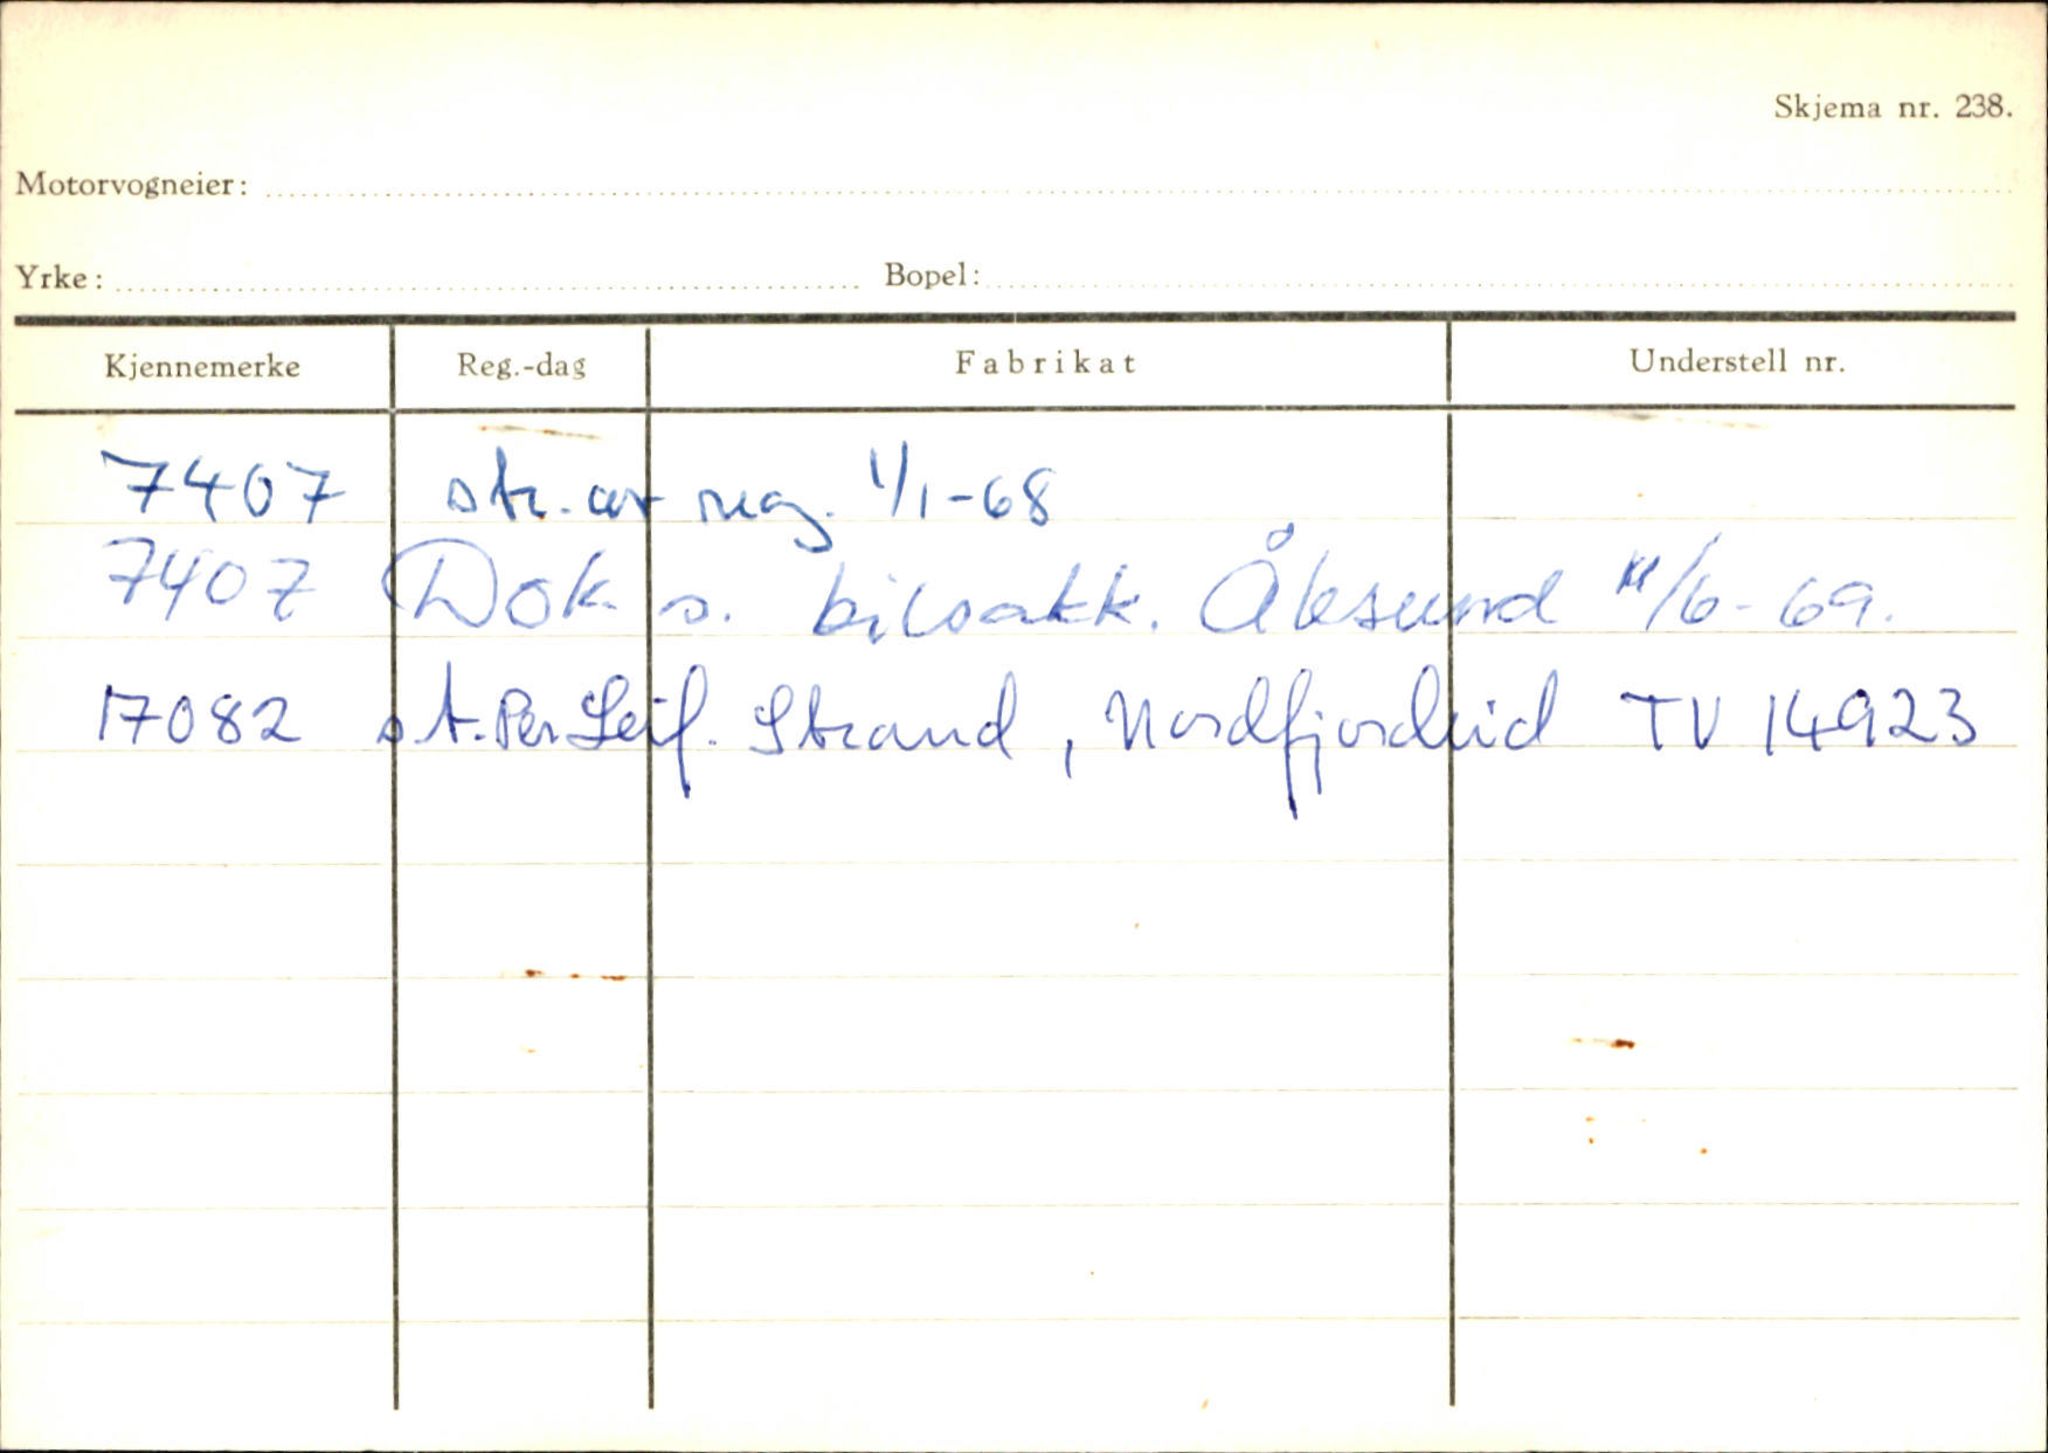 Skjema nr. 238.
Motorvogneier:
Yrke: Bopel:
Kjennemerke Reg.-dag Fabrikat Understell nr.
7407 str. av reg. 1/1-68
7407 Dok s. bilsakk. Ålesund /6-69.
17082 s.t. Per Leif. Strand, Nordfjordeid TV 14923